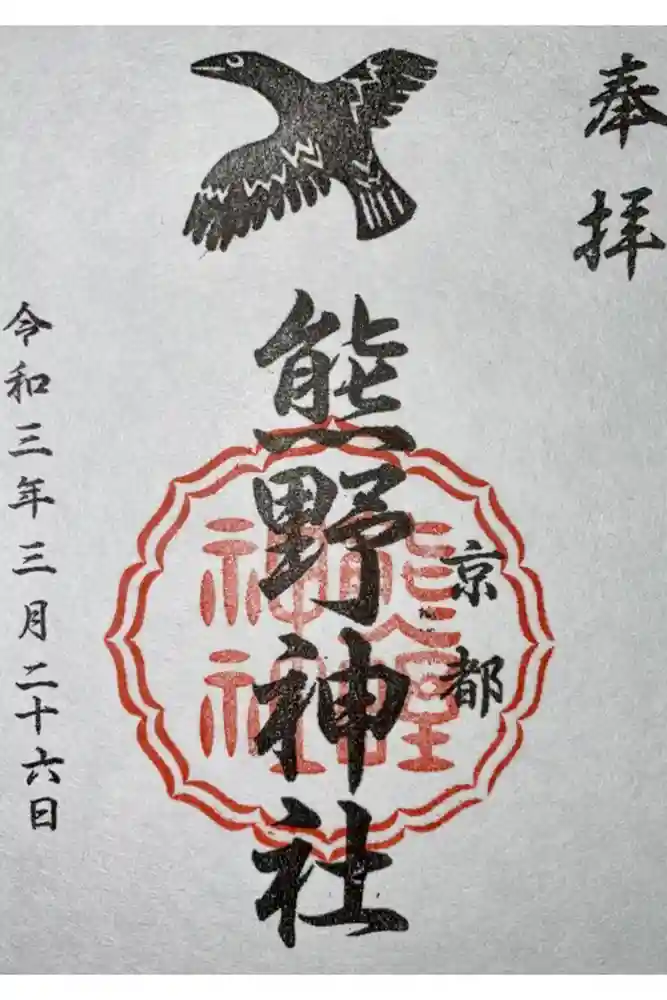 奉拝
京都
熊野神社
熊野
神社
令和三年三月二十六日